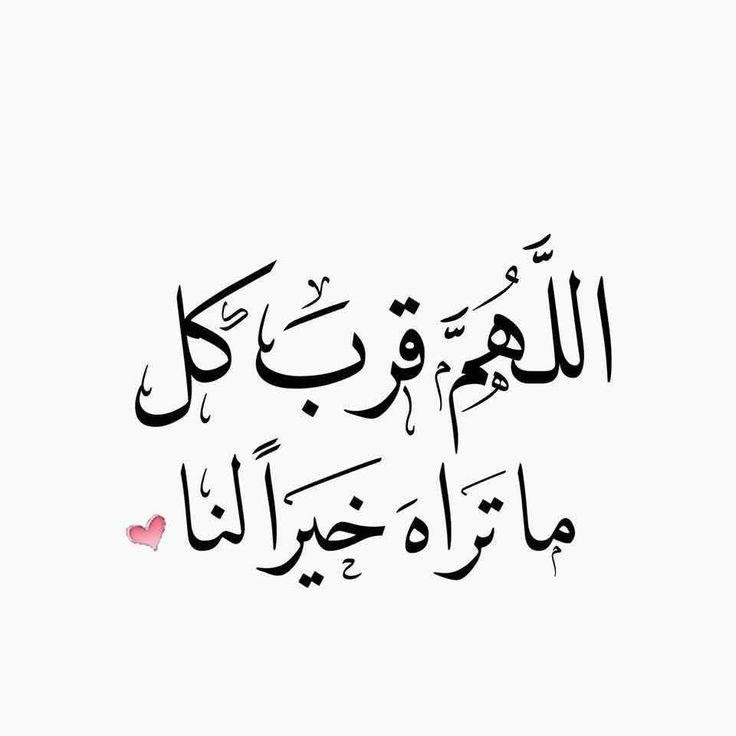 اللَّهُمَّ قربَ كل
ما تَراهَ خَيراً لنا